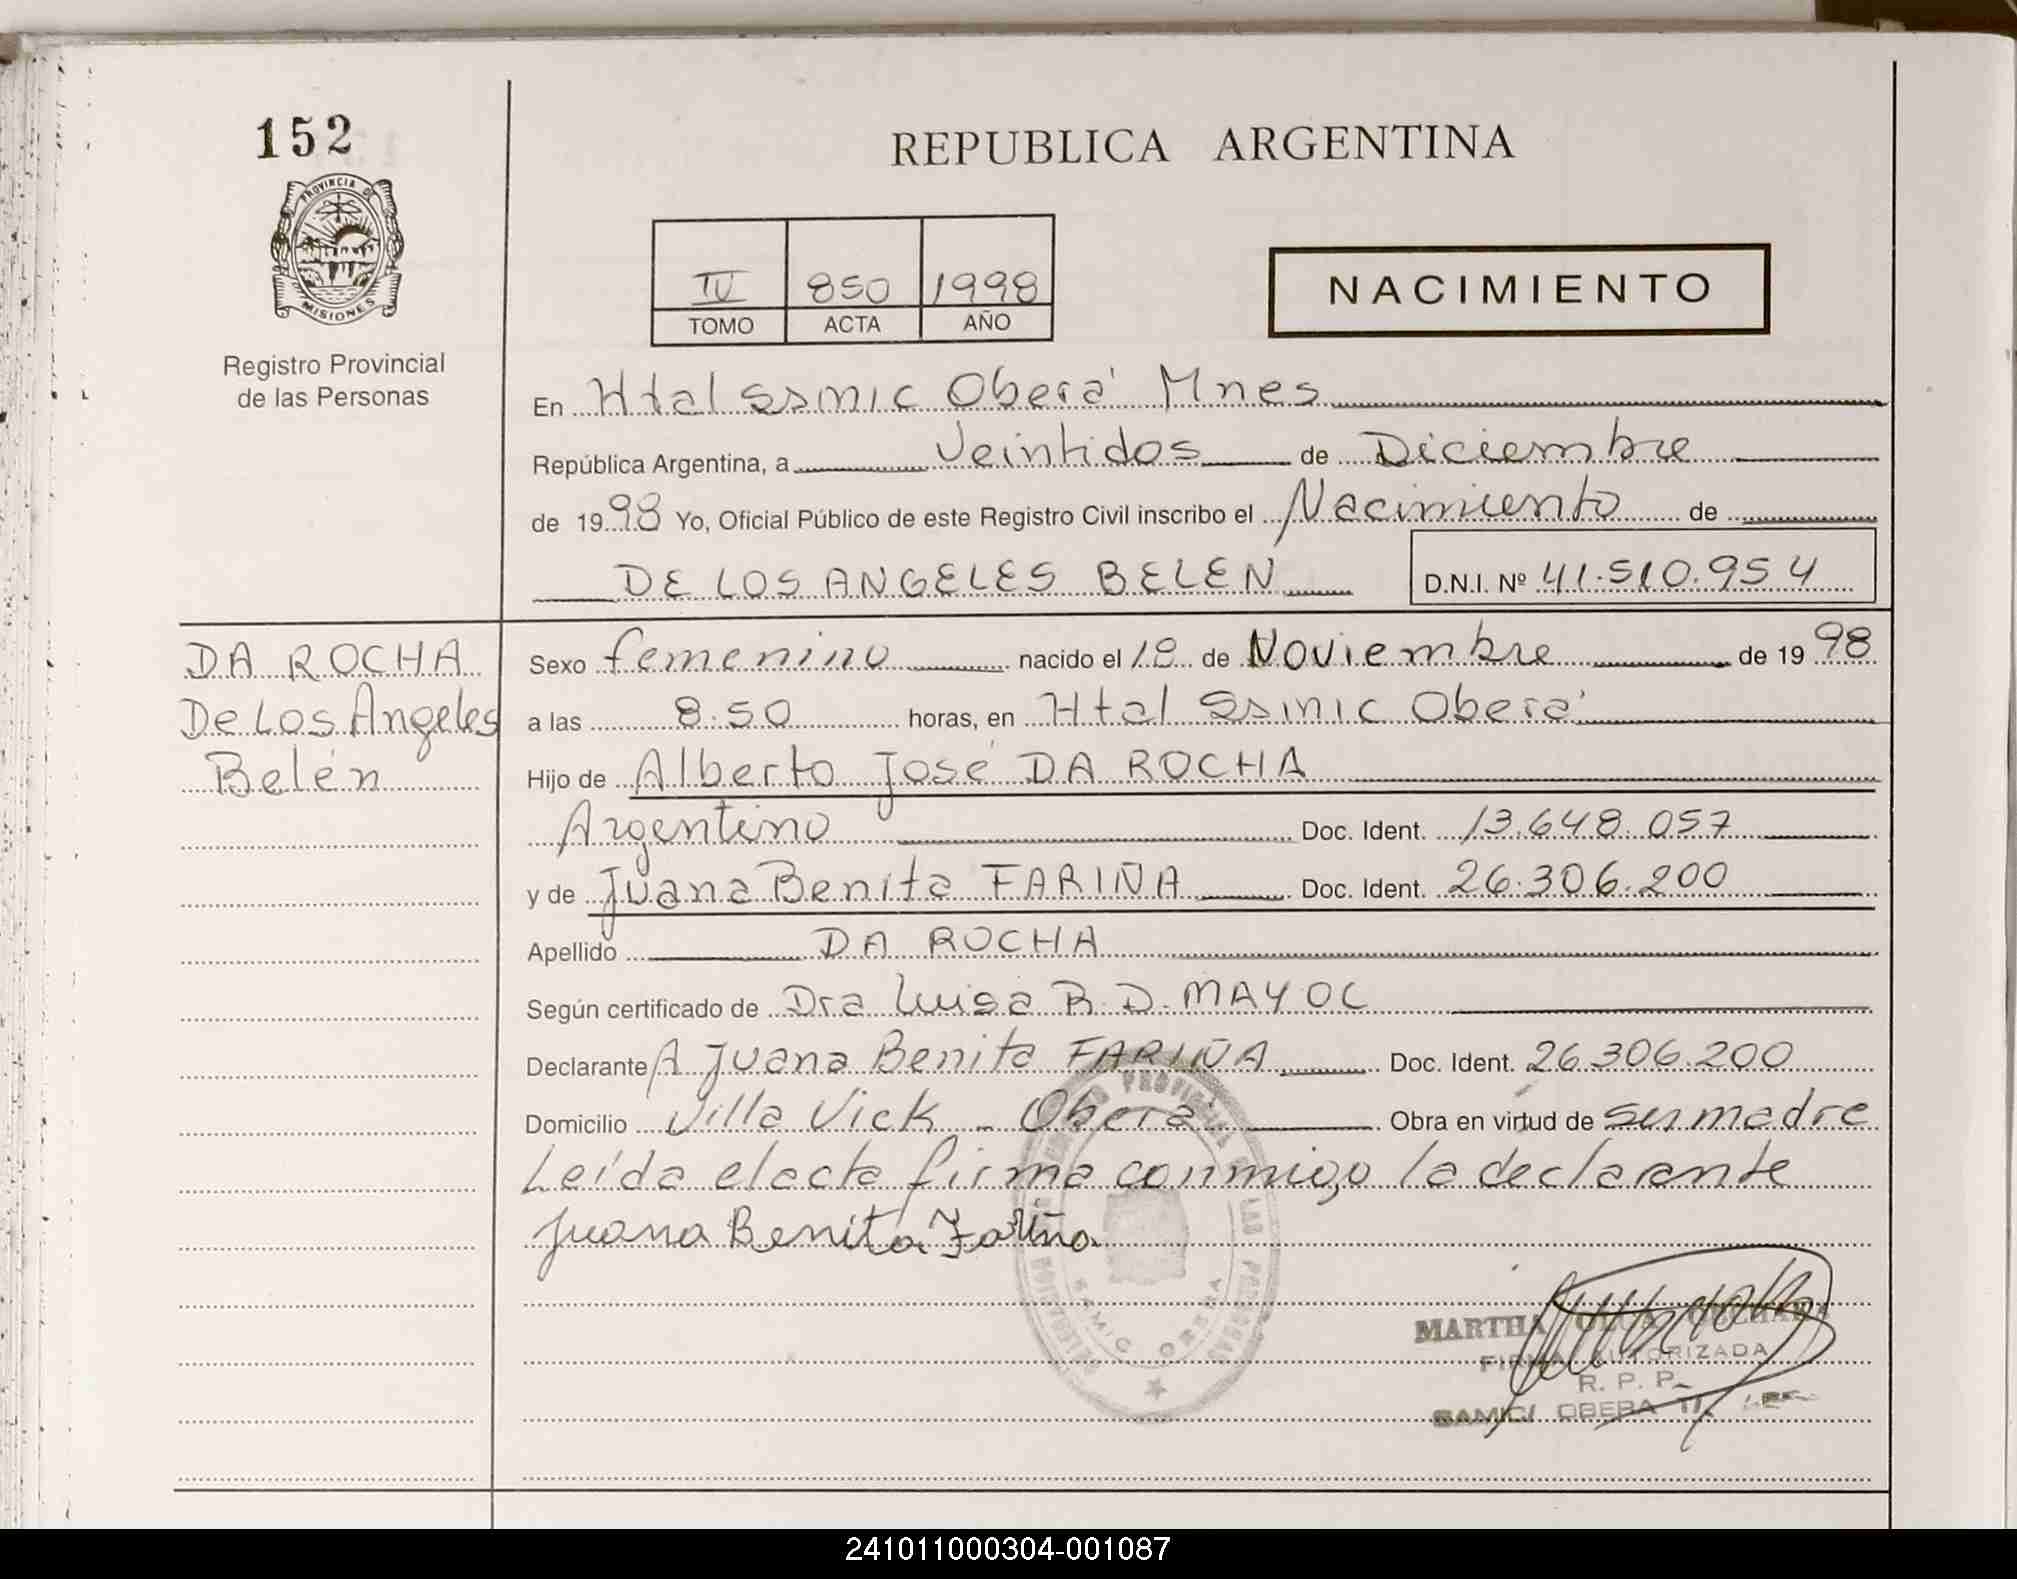 152
PROVINCIA DE
MISIONES
Registro Provincial
de las Personas
REPUBLICA ARGENTINA
IV 850 1998
TOMO ACTA AÑO
NACIMIENTO
En Htal Ssmic Oberá Mnes
República Argentina, a Veintidos de Diciembre
de 1998 Yo, Oficial Público de este Registro Civil inscribo el Nacimiento de
DE LOS ANGELES BELEN D.N.I. Nº 41.510.954
DA ROCHA
De Los Angeles
Belén
Sexo femenino nacido el 18 de Noviembre de 1998
a las 8.50 horas, en Htal Ssmic Oberá
Hijo de Alberto José DA ROCHA
Argentino Doc. Ident. 13.648.057
y de Juana Benita FARIÑA Doc. Ident. 26.306.200
Apellido DA ROCHA
Según certificado de Dra Luisa R. D. MAYOL
Declarante A Juana Benita FARIÑA Doc. Ident. 26.306.200
Domicilio Villa Vick - Oberá Obra en virtud de su madre
Leída el acta firma conmigo la declarante
Juana Benita Fariña
MARTHA
FIRMA AUTORIZADA
R. P. P.
SAMIC/ OBERA
241011000304-001087